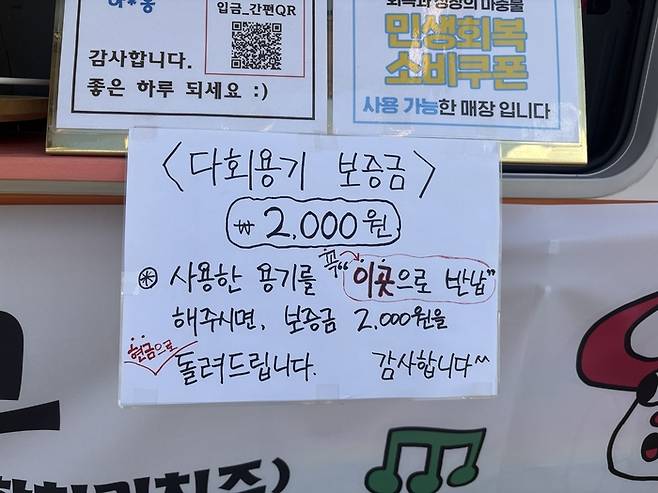 입금_간편QR
감사합니다.
좋은 하루 되세요 :)
회복과 성장의 마중물
민생회복
소비쿠폰
사용 가능한 매장 입니다
<다회용기 보증금>
₩ 2,000원
※ 사용한 용기를 꼭 "이곳으로 반납"
해주시면, 보증금 2,000원을
현금으로 돌려드립니다. 감사합니다^^